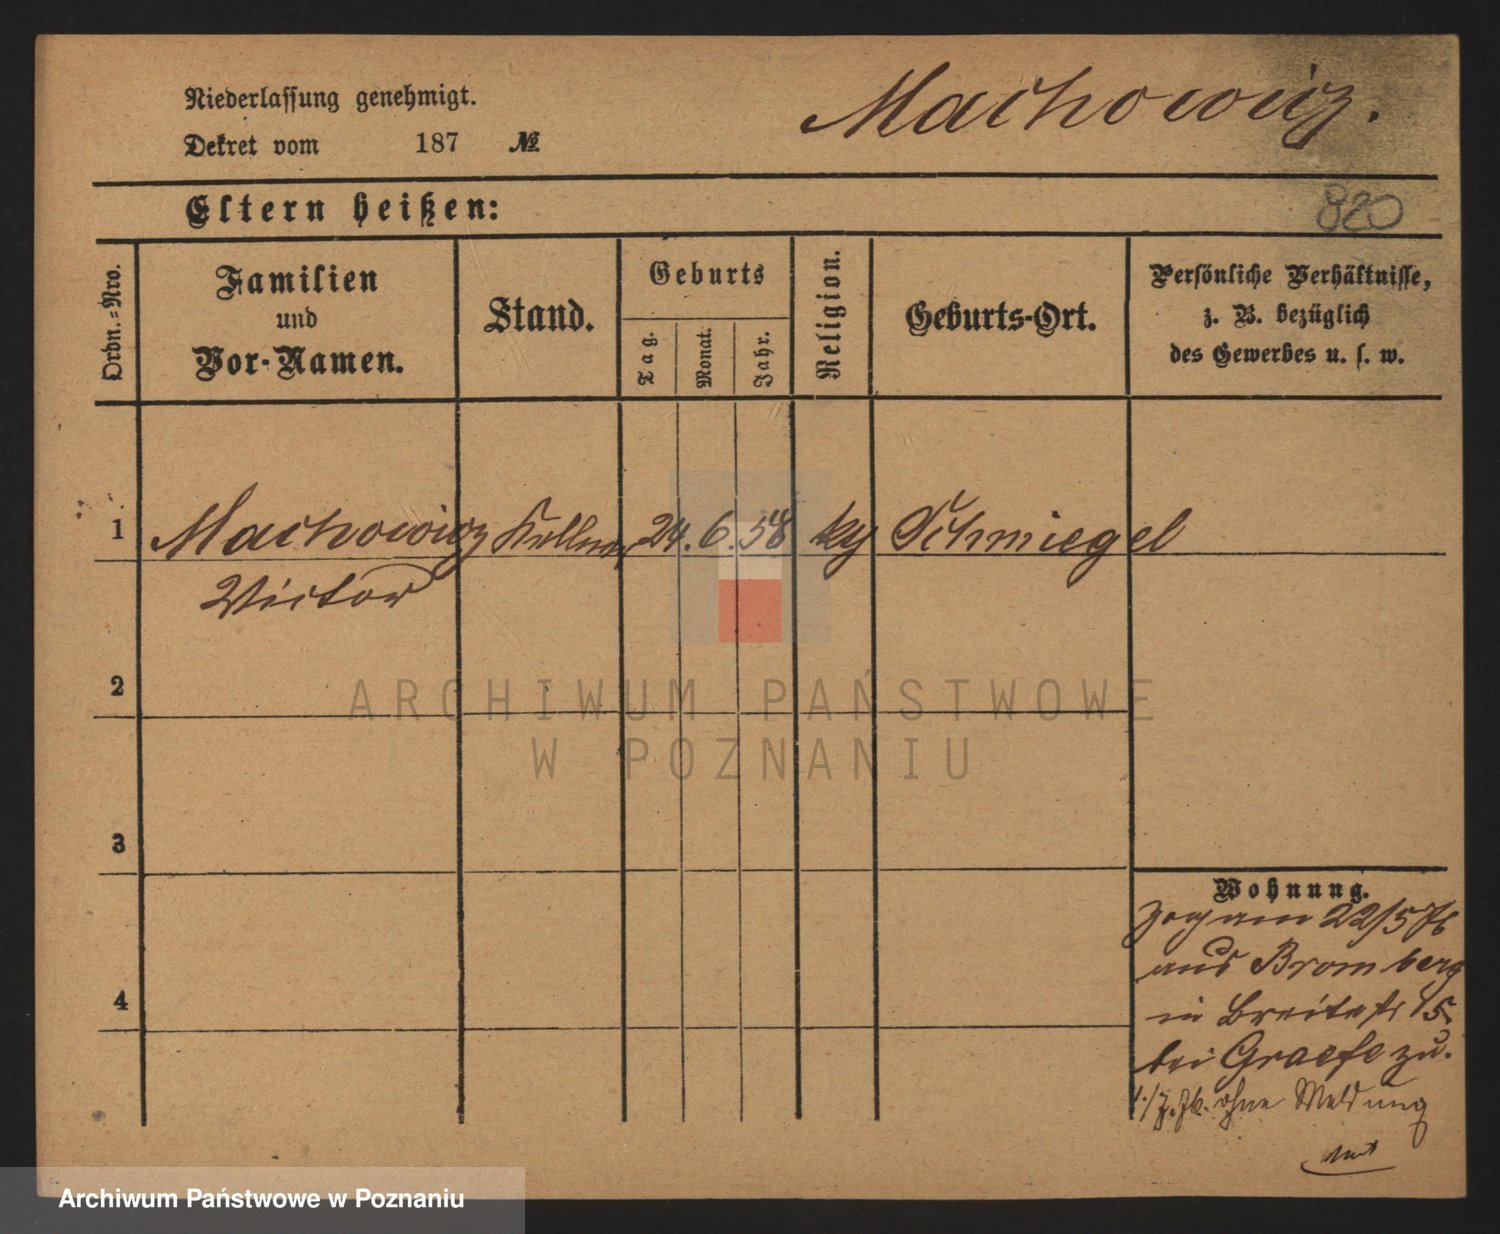 Niederlassung genehmigt.
Dekret vom 187 №
Machowicz.
Eltern heißen:
820
Ordn.-Nro.
Familien
und
Vor-Namen.
Stand.
Geburts
Tag.
Monat.
Jahr.
Religion.
Geburts-Ort.
Persönliche Verhältnisse,
z. B. bezüglich
des Gewerbes u. s. w.
1 Machowicz Kellner 24. 6. 58 Schmiegel
Victor
2
ARCHIWUM PAŃSTWOWE
W POZNANIU
3
4
Wohnung.
zog am 22/5 76
aus Bromberg
in Breitestr 15.
bei Graefe zu.
ohne Meldung
Archiwum Państwowe w Poznaniu